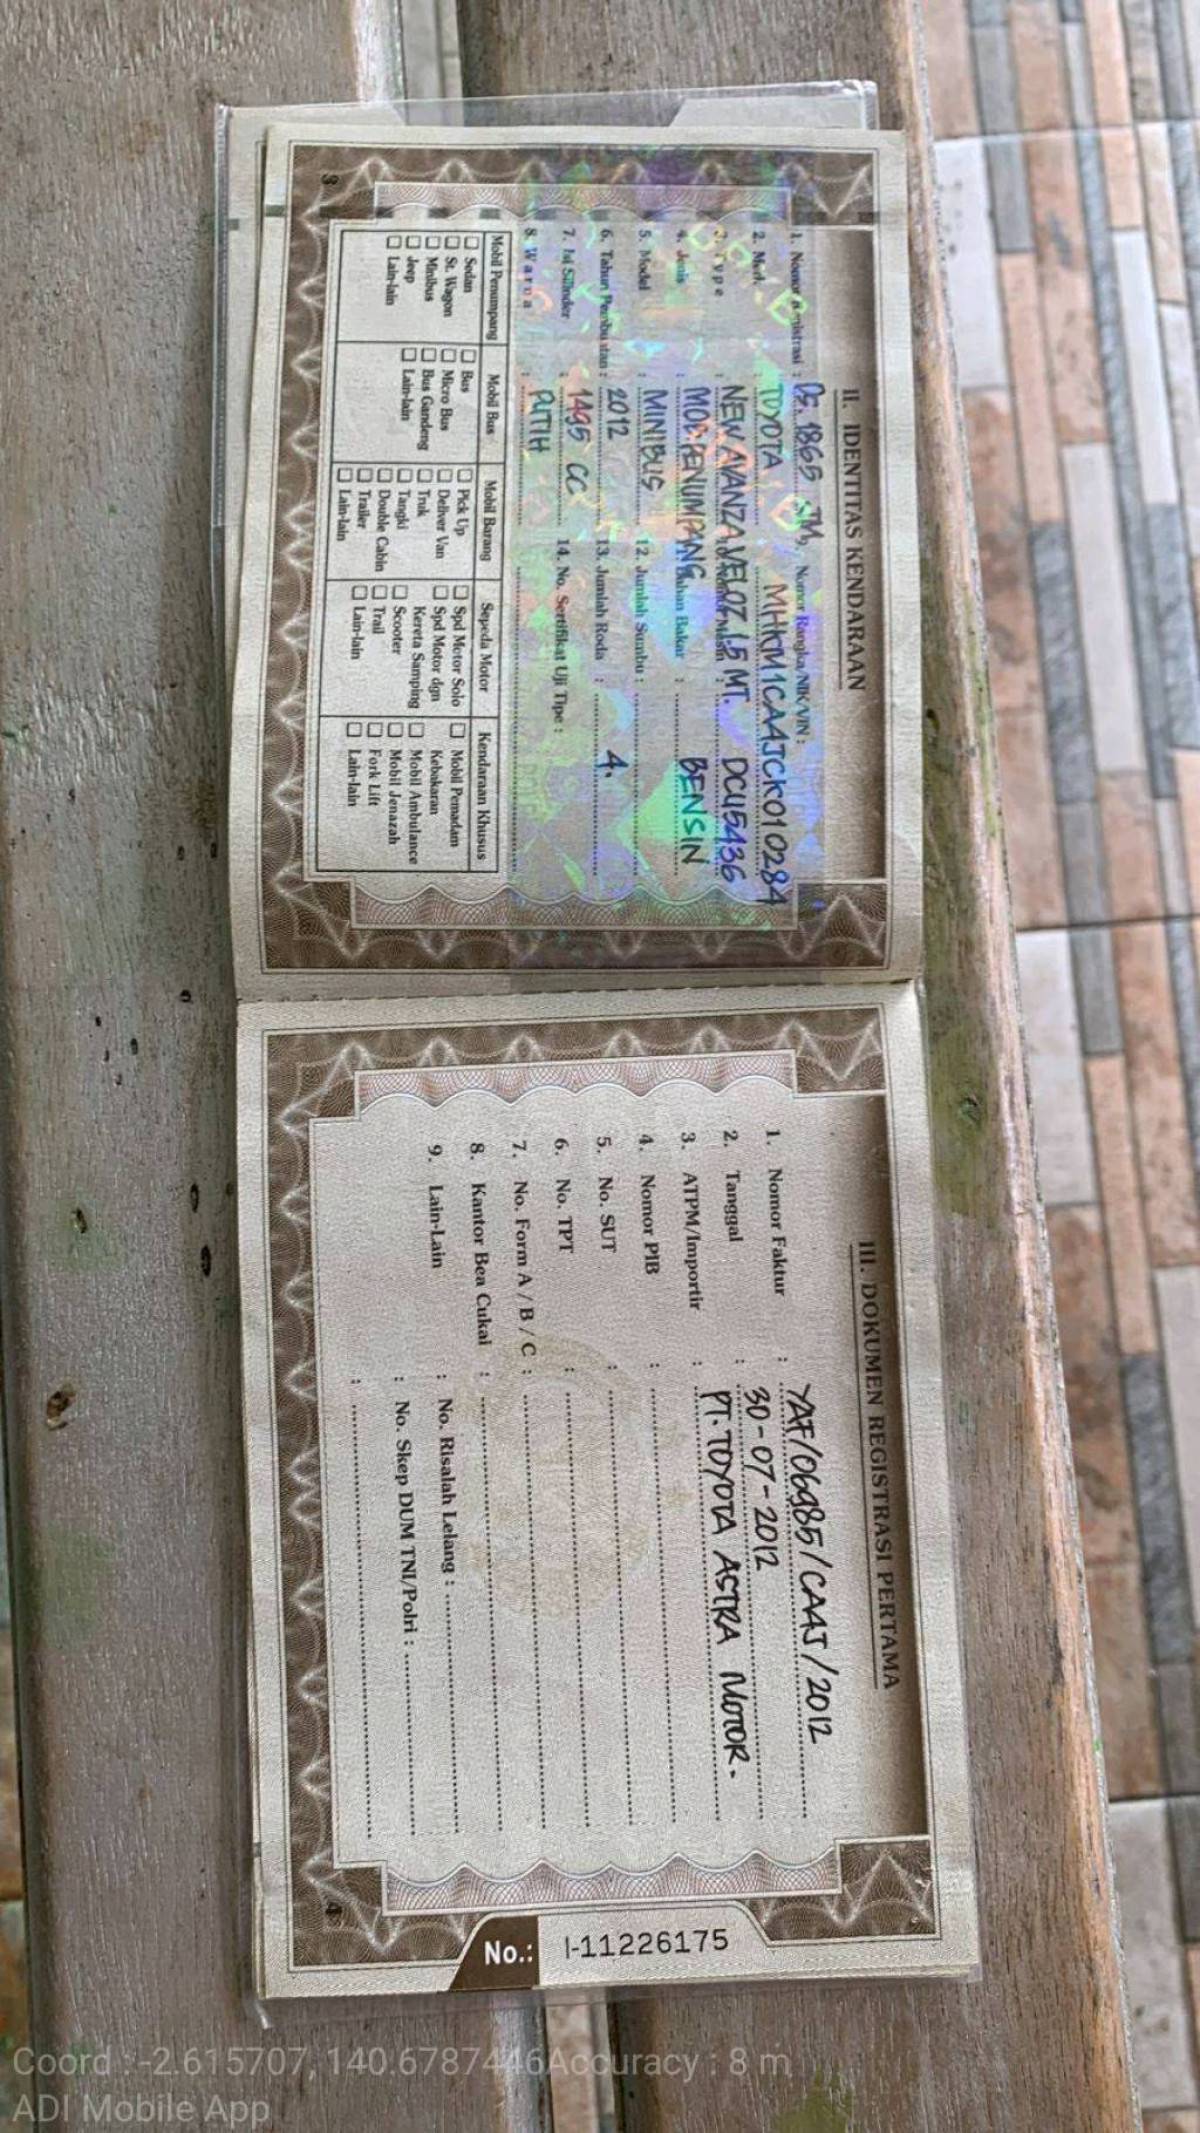 II. IDENTITAS KENDARAAN
1. Nomor Registrasi : DS. 1865 JM. Nomor Rangka/NIK/VIN :
2. Merk : TOYOTA MHKM1CA4JCK010284
3. Type : NEW AVANZA VELOZ 1.5 MT. DCU5436
4. Jenis : MOB. PENUMPANG Bahan Bakar : BENSIN
5. Model : MINIBUS 12. Jumlah Sumbu :
6. Tahun Pembuatan : 2012 13. Jumlah Roda : 4.
7. Isi Silinder : 1495 CC 14. No. Sertifikat Uji Tipe :
8. Warna : PUTIH
Mobil Penumpang Mobil Bus Mobil Barang Sepeda Motor Kendaraan Khusus
Sedan Bus Pick Up Spd Motor Solo Mobil Pemadam
St. Wagon Micro Bus Deliver Van Spd Motor dgn Kebakaran
Minibus Bus Gandeng Truk Kereta Samping Mobil Ambulance
Jeep Lain-lain Tangki Scooter Mobil Jenazah
Lain-lain Double Cabin Trail Fork Lift
Trailer Lain-lain Lain-lain
Lain-lain
3
III. DOKUMEN REGISTRASI PERTAMA
1. Nomor Faktur : YAF/06985/CA4J/2012
2. Tanggal : 30-07-2012
3. ATPM/Importir : PT. TOYOTA ASTRA MOTOR.
4. Nomor PIB :
5. No. SUT :
6. No. TPT :
7. No. Form A / B / C :
8. Kantor Bea Cukai :
9. Lain-Lain : No. Risalah Lelang :
: No. Skep DUM TNI/Polri :
:
4
No.: I-11226175
Coord : -2.615707, 140.6787446Accuracy : 8 m
ADI Mobile App